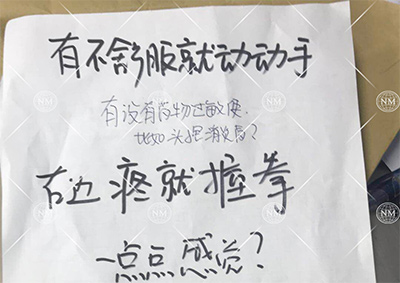 有不舒服就动动手
有没有药物过敏史.
比如头孢 消炎药?
右边疼就握拳
一点点感觉?
NM